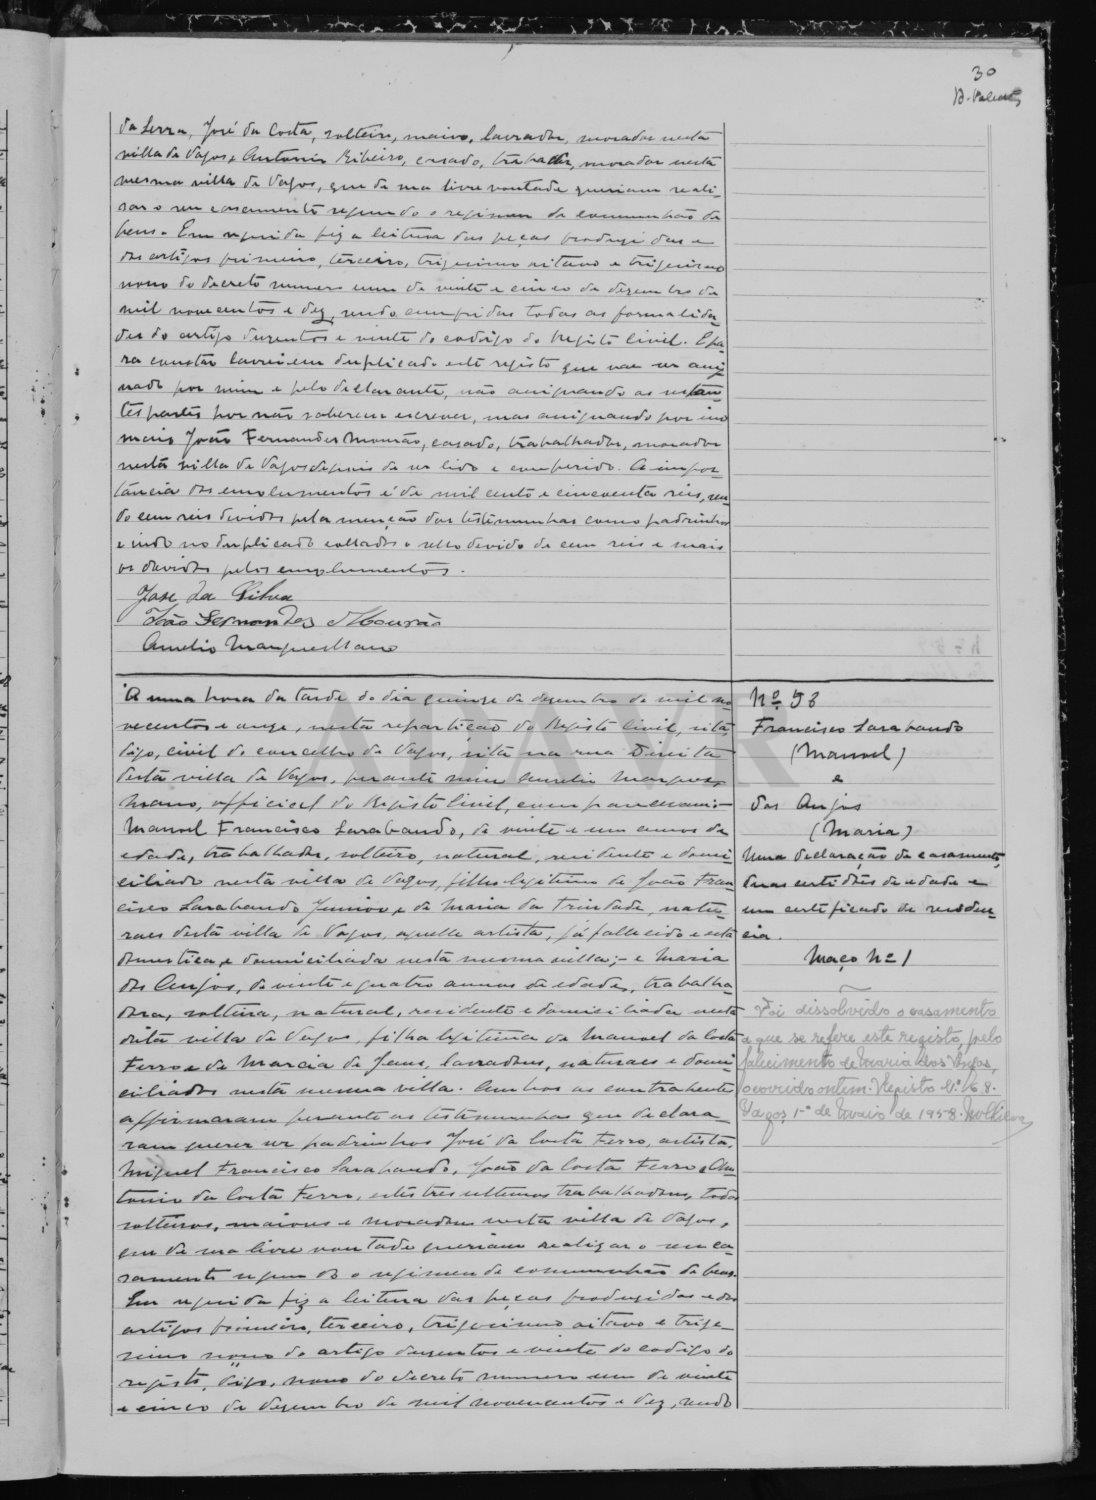 30
da Serra, José da Costa, solteiro, maior, lavrador, morador nesta
villa de Vagos e Antonio Ribeiro, casado, trabador, morador nesta
mesma villa de Vagos, que de sua livre vontade queriam reali-
sar o seu casamento segundo o regimen da communhão de
bens. Em seguida fiz a leitura das peças produzidas e
dos artigos primeiro, terceiro, trigesimo oitavo e trigesimo
nono do decreto numero um de vinte e cinco de dezembro de
mil novecentos e dez, sendo cumpridas todas as formalida-
des do artigo duzentos e vinte do codigo do Registo Civil. E pa-
ra constar lavrei em duplicado este registo que vae ser assig-
nado por mim e pelo declarante, não assignando as restan-
tes partes por não saberem escrever, mas assignando por
João Fernandes Mourão, casado, trabalhador, morador
nesta villa de Vagos depois de ser lido e conferido. A impor-
tancia dos emolumentos é de mil cento e cincoenta reis, sen-
do cem reis devidos pela menção das testimunhas como padrinhos
e indo no duplicado collados o sello devido de cem reis e mais
os devidos pelos emolumentos.
Jose da Silva
João Fernandes Mourão
Aurelio Marques Mano
A uma hora da tarde do dia quinze de dezembro de mil no-
vecentos e onze, nesta repartição do Registo Civil, sita,
digo, civil do concelho de Vagos, sita na rua Direita
desta villa de Vagos, perante mim Aurelio Marques
Mano, official do Registo Civil, compareceram:-
Manoel Francisco Sarabando, de vinte e um annos de
edade, trabalhador, solteiro, natural, residente e domi-
ciliado nesta villa de Vagos, filho legitimo de João Fran-
cisco Sarabando Junior e de Maria da Trindade, natu-
raes desta villa de Vagos, aquelle artista, já fallecido e esta
domestica, e domiciliada nesta mesma villa;- e Maria
dos Anjos, de vinte e quatro annos de edade, trabalha-
dora, solteira, natural, residente e domiciliada nesta
dita villa de Vagos, filha legitima de Manoel da Costa
Ferro e de Marcia de Jesus, lavradores, naturaes e domi-
ciliados nesta mesma villa. Ambos os contrahentes
affirmaram perante as testimunhas que declara-
ram querer ser padrinhos José da Costa Ferro, artista,
Miguel Francisco Sarabando, João da Costa Ferro e An-
tonio da Costa Ferro, estes tres ultimos trabalhadores, todos
solteiros, maiores e moradores nesta villa de Vagos,
que de sua livre vontade queriam realizar o seu ca-
samento segundo o regimen de communhão de bens.
Em seguida fiz a leitura das peças produzidas e dos
artigos primeiro, terceiro, trigesimo oitavo e trige-
simo nono do artigo duzentos e vinte do codigo do
registo, digo, nono do decreto numero um de vinte
e cinco de dezembro de mil novecentos e dez, sendo
Nº 53
Francisco Sarabando
(Manoel)
e
dos Anjos
(Maria)
Uma declaração de casamento,
duas certidões de edade e
um certificado de residen-
cia.
Maço nº 1
Foi dissolvido o casamento
a que se refere este registo, pelo
falecimento de Maria dos Anjos,
ocorrido ontem. Registo Nº 68.
Vagos, 1º de Maio de 1958.
ADAVR